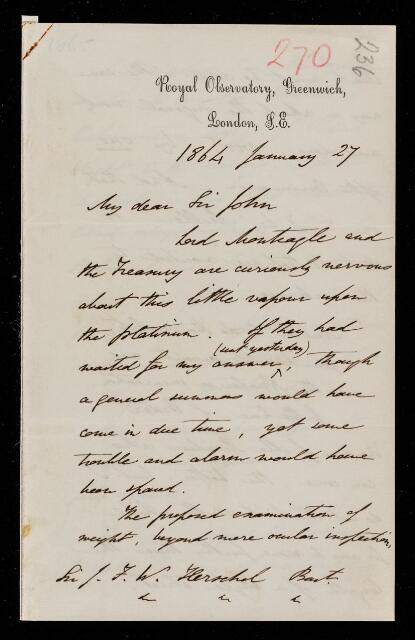 270
236
Royal Observatory, Greenwich,
London, S.E.
1864 January 27
My dear Sir John
Lord Monteagle and
the Treasury are curiously nervous
about this little vapour upon
the platinum. If they had
(sent yesterday)
waited for my answer, though
a general summons would have
come in due time, yet some
trouble and alarm would have
been spared.
The proposed examination of
weight, beyond mere ocular inspection,
Sir J. F. W. Herschel Bart.